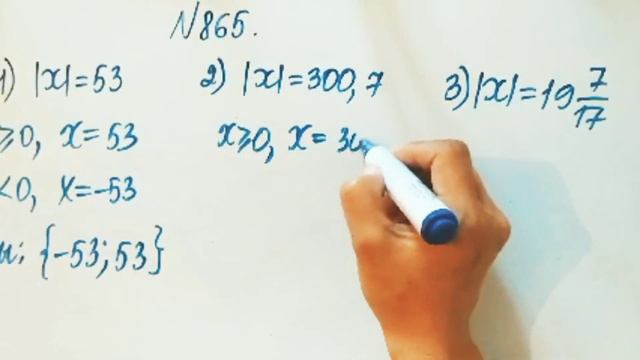 №865.
1) |x|=53
≥0, x=53
<0, x=-53
{-53;53}
2) |x|=300,7
x≥0, x=30
3) |x|=19 7/17